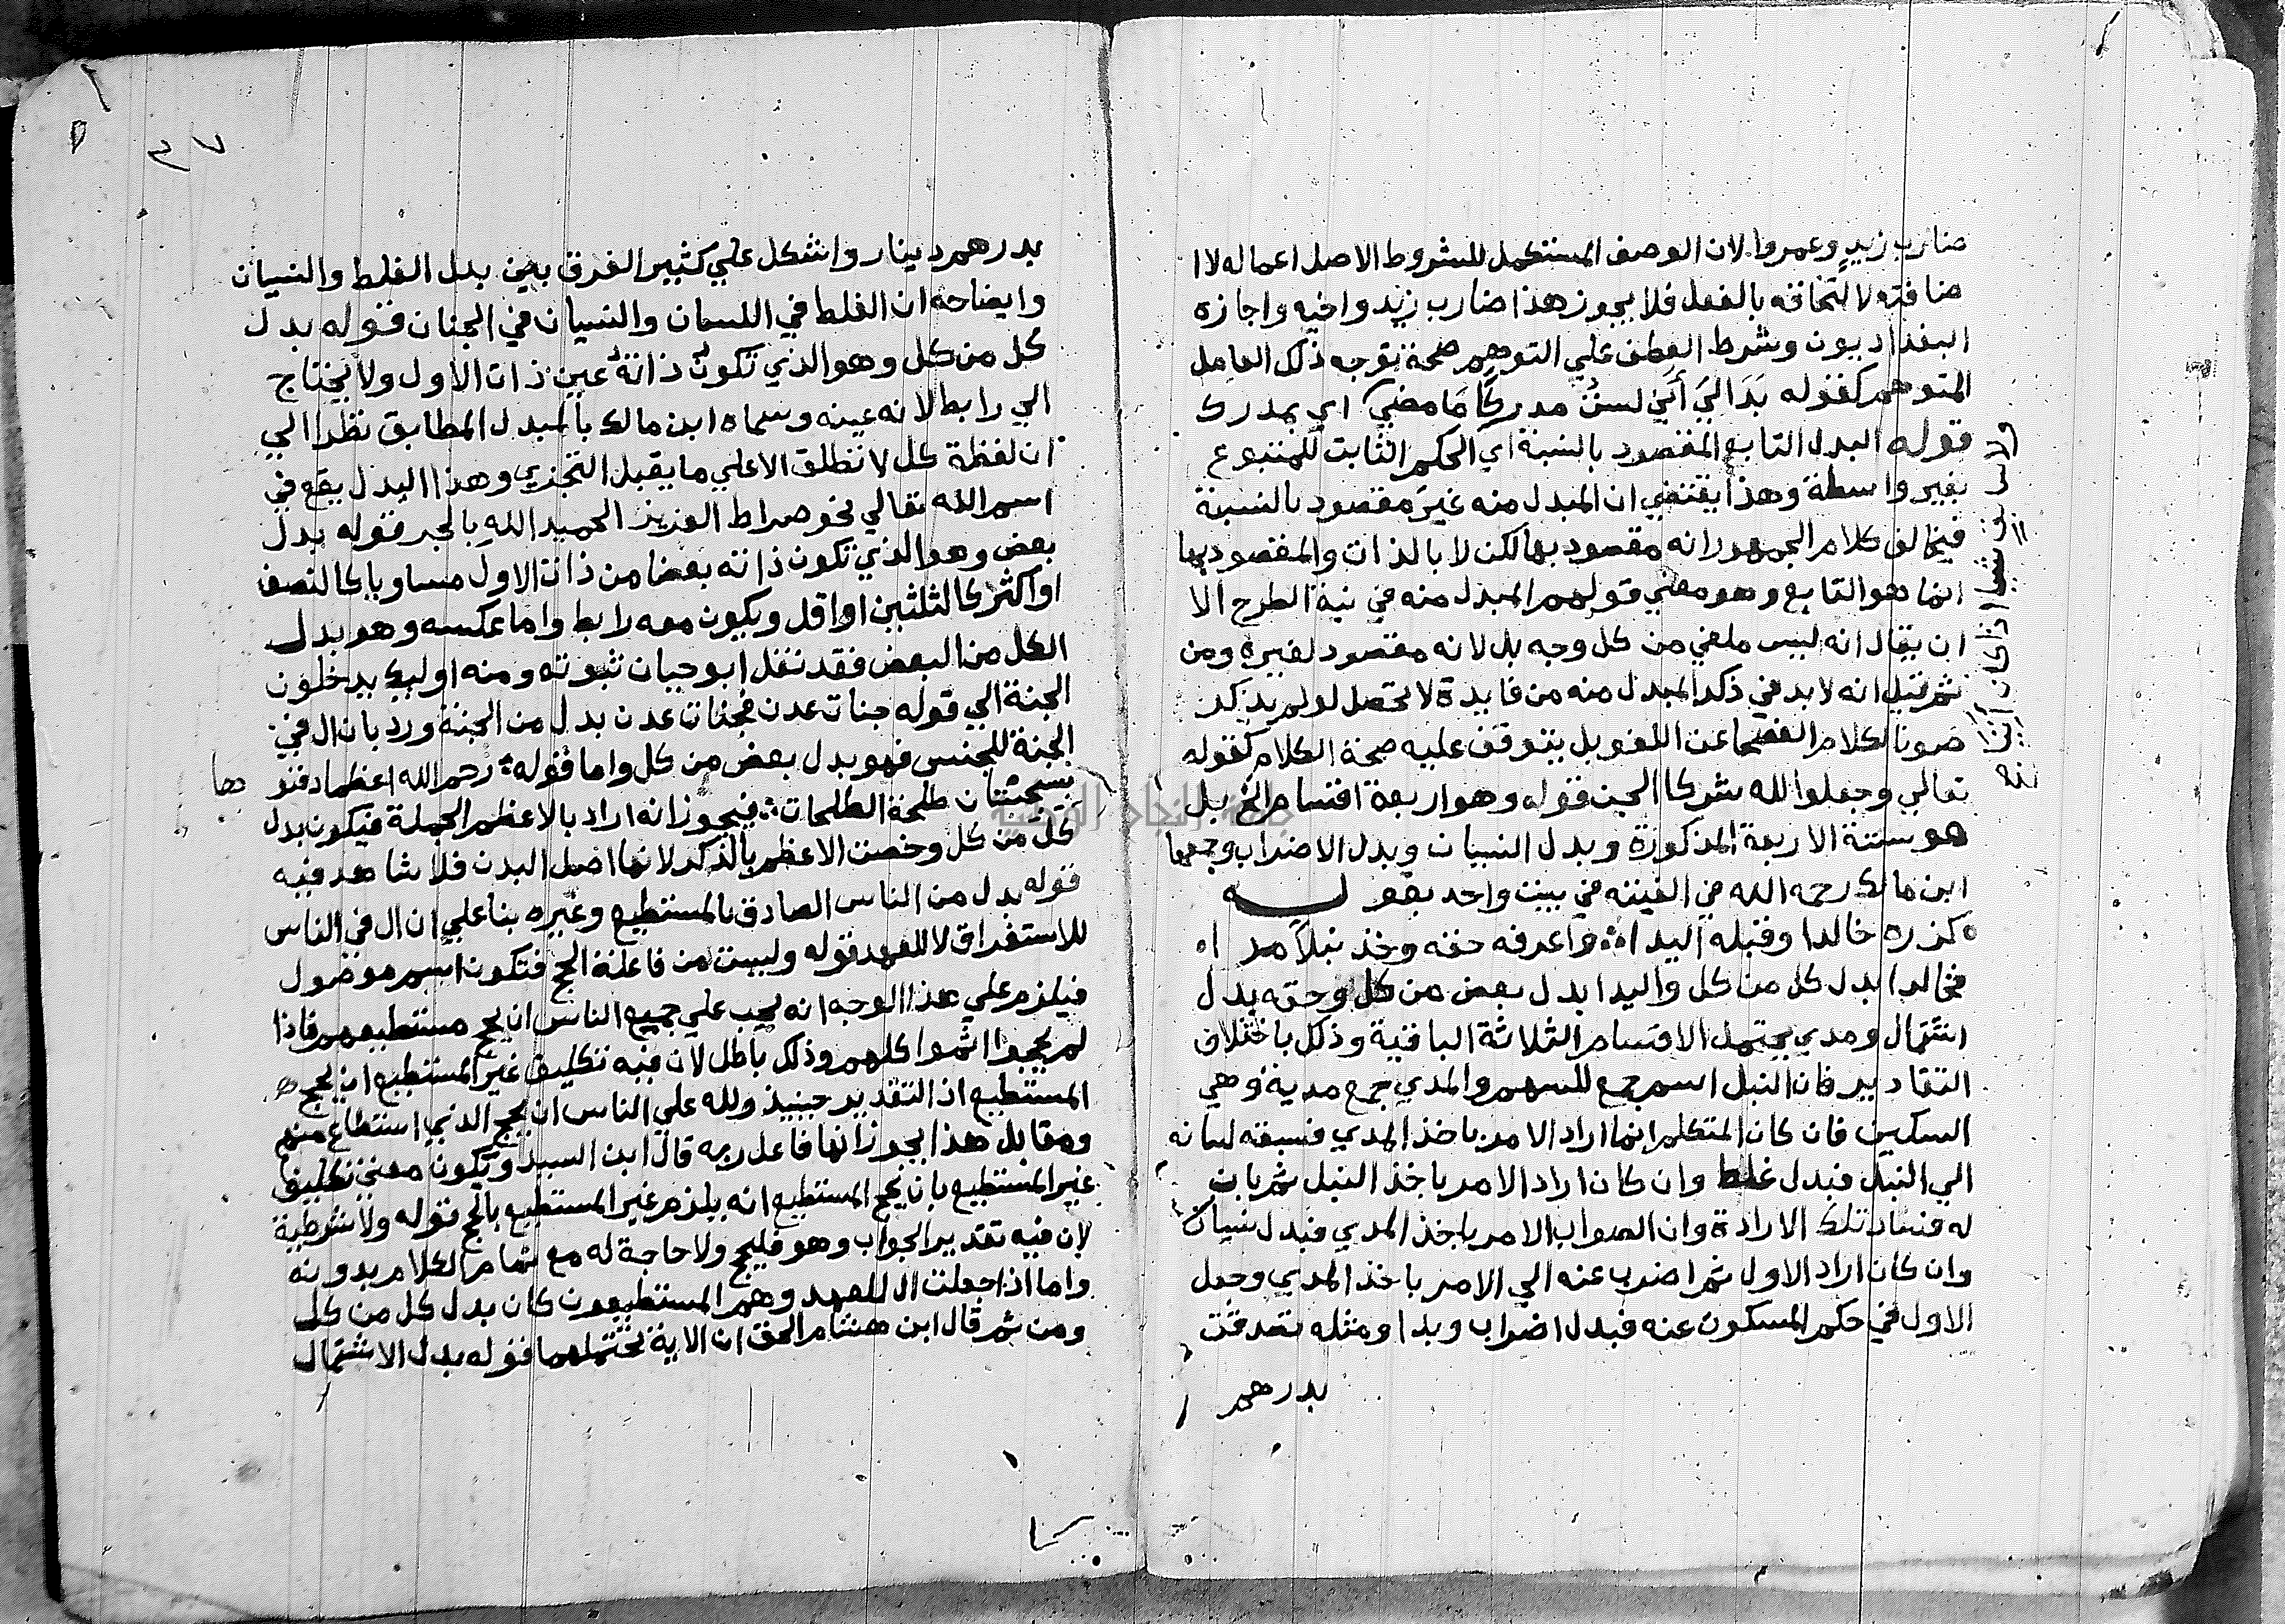 ضارب زيدٍ وعمروا لان الوصف المستكمل للشروط الاصل اعماله لاا
ضافته لالتحاقه بالفعل فلا يجوز هذا ضارب زيد واخيه واجازه
البغداديون وشرط العطف علي التوهم صحة توجه ذلك العامل
المتوهم كقوله بَدَا ليَ أَنّي لستُ مدركًا مَا مضيَ اي بمدرك
قوله البدل التابع المقصود بالنسبة اي الحكم الثابت للمتبوع
بغير واسطة وهذا يقتضي ان المبدل منه غير مقصود بالنسبة
فيخالف كلام الجمهور انه مقصود بها لكن لا بالذات والمقصود بها
انما هو التابع وهو معني قولهم المبدل منه في نية الطرح الا
ان يقال انه ليس ملغي من كل وجه بل لانه مقصود لغيره ومن
ثم قيل انه لابد في ذكر المبدل منه من فايدة لا تحصل لو لم يذكر
صونا لكلام الفصحا عن اللغو بل يتوقف عليه صحة الكلام كقوله
تعالي وجعلوا لله شركا الجن قوله وهو اربعة اقسام الخ بل
هو ستة الاربعة المذكورة وبدل النسيان وبدل الاضراب وجمعها
ابن مالك رحمه الله في الفيته في بيت واحد بقوله
كزره خالدا وقبله اليدا واعرفه حقه وخذ نبلاً مدا
فخالدا بدل كل من كل واليدا بدل بعض من كل وحقه بدل
اشتمال ومدي يحتمل الاقسام الثلاثة الباقية وذلك باختلاف
التقادير فان النبل اسم جمع للسهم والمدي جمع مدية وهي
السكين فان كان المتكلم انما اراد الامر باخذ المدي فسبقه لسانه
الي النبل فبدل غلط وان كان اراد الامر باخذ النبل ثم بان
له فساد تلك الارادة وان الصواب الامر باخذ المدي فبدل نسيان
وان كان اراد الاول ثم اضرب عنه الي الامر باخذ المدي وجعل
الاول في حكم المسكون عنه فبدل اضراب وبدا ومثله تصدقت
بدرهم
٣٧
بدرهم دينار واشكل علي كثير الفرق بين بدل الغلط والنسيان
وايضاحه ان الغلط في اللسان والنسيان في الجنان قوله بدل
كل من كل وهو الذي تكون ذاته عين ذات الاول ولا يحتاج
الي رابط لانه عينه وسماه ابن مالك بالبدل المطابق نظرا الي
ان لفظة كل لا تطلق الا علي ما يقبل التجزي وهذا البدل يقع في
اسم الله تعالي نحو صراط العزيز الحميد اللهِ بالجر قوله بدل
بعض وهو الذي تكون ذاته بعضا من ذات الاول مساويا كالنصف
او اكثر كالثلثين او اقل ويكون معه رابط واما عكسه وهو بدل
الكل من البعض فقد نقل ابو حيان ثبوته ومنه اوليك يدخلون
الجنة الي قوله جنات عدن فجنات عدن بدل من الجنة ورد بان ال في
الجنة للجنس فهو بدل بعض من كل واما قوله رحم الله اعظما دفنو ها
بسجستان طلحة الطلحات فيجوز انه اراد بالاعظم الجملة فيكون بدل
كل من كل وخصت الاعظم بالذكر لانها اصل البدن فلا شاهد فيه
قوله بدل من الناس الصادق بالمستطيع وغيره بنا علي ان ال في الناس
للاستغراق لا للعهد قوله وليست من فاعلة الحج فتكون اسم موصول
فيلزم علي هذا الوجه انه يجب علي جميع الناس ان يحج مستطيعهم فاذا
لم يحجوا اثموا كلهم وذلك باطل لان فيه تكليف غير المستطيع ان يحج
المستطيع اذ التقدير حينيذ ولله علي الناس ان يحج الذي استطاع منهم
ومقابل هذا يجوز انها فاعل وبه قال ابن السيد ويكون معني تكليف
غير المستطيع بان يحج المستطيع انه يلزم غير المستطيع بالحج قوله ولا شرطية
لان فيه تقدير الجواب وهو فليحج ولا حاجة له مع تمام الكلام بدونه
واما اذا جعلت ال للعهد وهم المستطيعون كان بدل كل من كل
ومن ثم قال ابن هشام الحق ان الاية تحتملهما قوله بدل الاشتمال